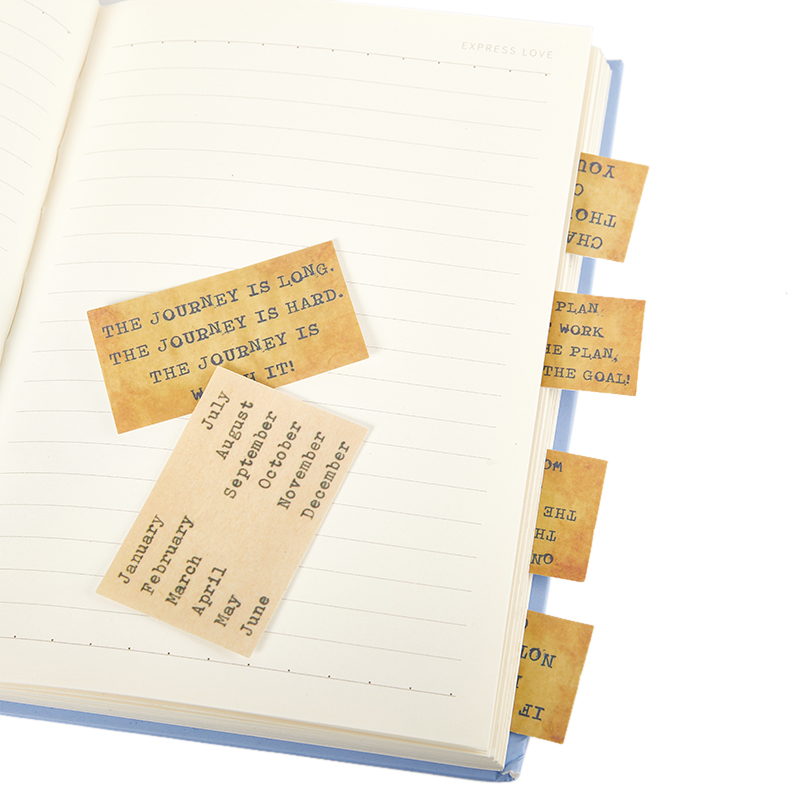 EXPRESS LOVE
THE JOURNEY IS LONG.
THE JOURNEY IS HARD.
THE JOURNEY IS
IT!
January
February
March
April
May
June
July
August
September
October
November
December
CHA
THO
YOU
PLAN
WORK
HE PLAN,
THE GOAL!
ON
TH
THE
WO
IF
NOT